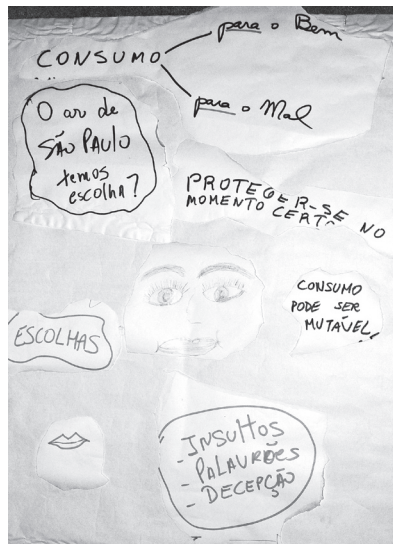 para o Bem
CONSUMO
para o Mal
O ar de
SÃO PAULO
temos
escolha?
PROTEGER-SE NO
MOMENTO CERTO
CONSUMO
PODE SER
MUTÁVEL!
ESCOLHAS
- INSULTOS
- PALAVRÕES
- DECEPÇÃO